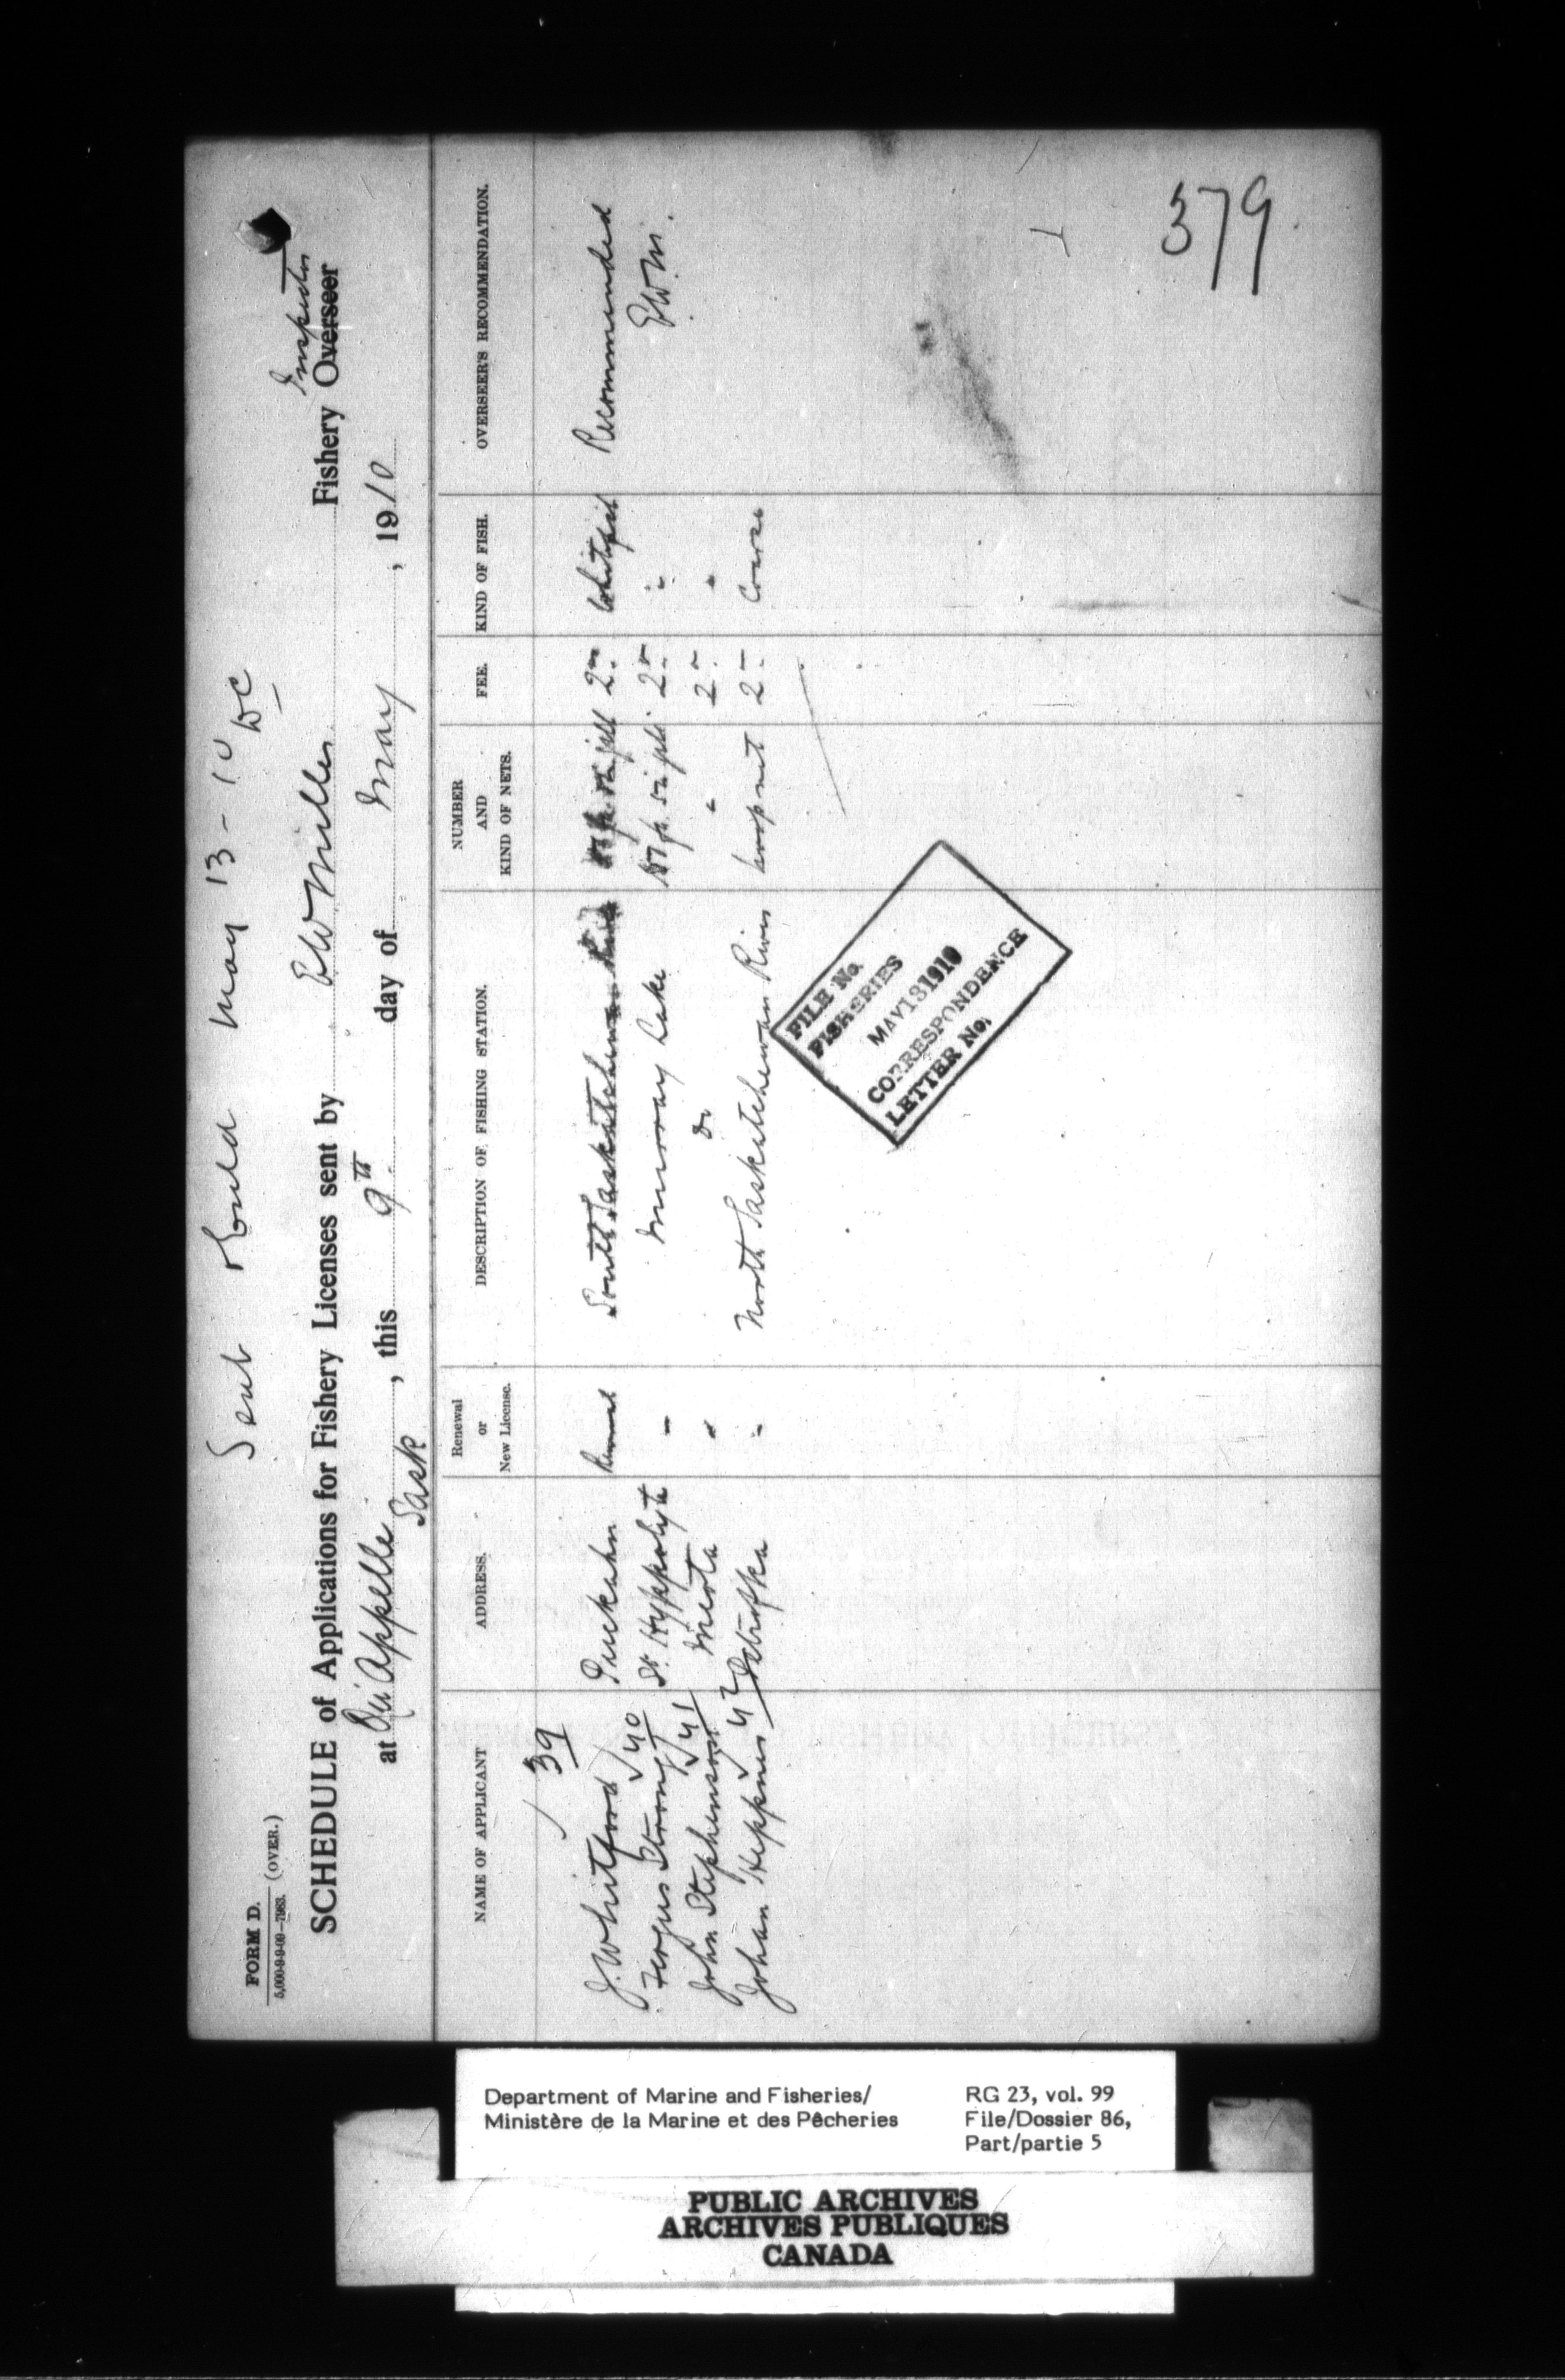 Sent Gould May 13-10 DC
FORM D.
5,000-9-9-09—7963.
(OVER.)
SCHEDULE of Applications for Fishery Licenses sent by EW Miller Fishery Overseer Inspector
at Qu'Appelle Sask, this 9th day of May, 1910
NAME OF APPLICANT ADDRESS. Renewal or New License. DESCRIPTION OF FISHING STATION. NUMBER AND KIND OF NETS. FEE. KIND OF FISH. OVERSEER'S RECOMMENDATION.
J. Whitford 39 Renewal South Saskatchewan River 2 Whitefish Recommended
Fergus Strong 40 St. Hyppolyte " Murray Lake 2 " EWM.
John Stephenson 41 Meota " Do " 2 "
Johan Heppner 42 Petrofka " North Saskatchewan River hoopnet 2 Coarse
FILE No.
FISHERIES
MAY 13 1910
CORRESPONDENCE
LETTER No.
579
Department of Marine and Fisheries/
Ministère de la Marine et des Pêcheries
RG 23, vol. 99
File/Dossier 86,
Part/partie 5
PUBLIC ARCHIVES
ARCHIVES PUBLIQUES
CANADA